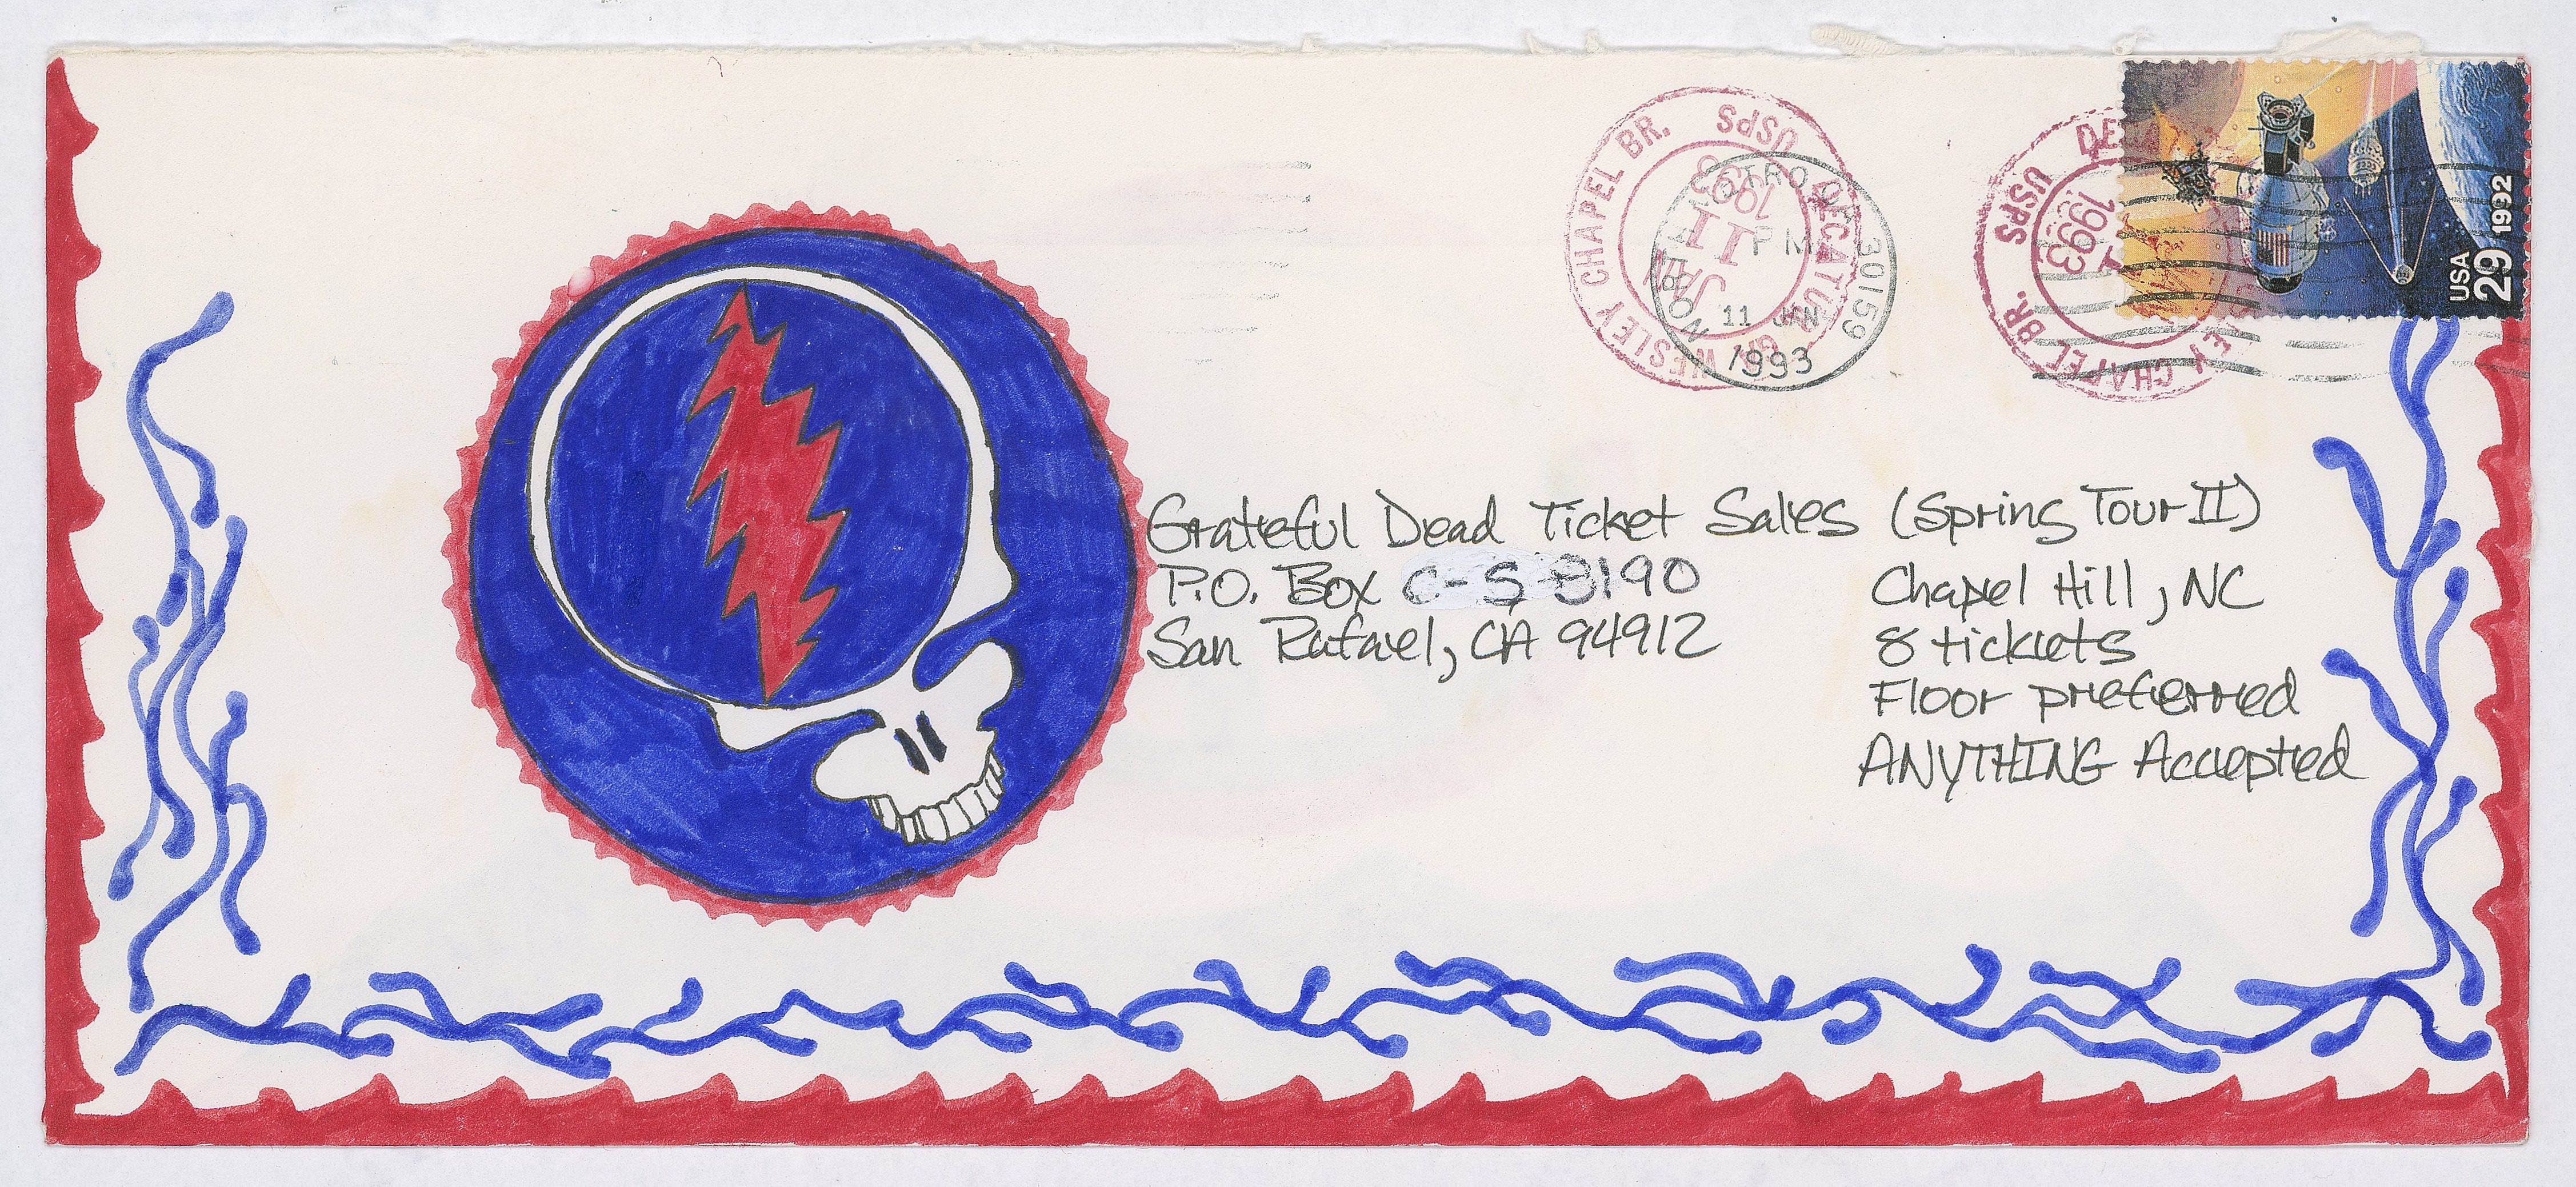 Grateful Dead Ticket Sales (Spring Tour II)
P.O. Box C-S 8190
San Rafael, CA 94912
Chapel Hill, NC
8 tickets
Floor preferred
ANYTHING Accepted
WESLEY CHAPEL BR. USPS DECATUR GA
JAN
11
1993
NORTH METRO GA 30159
PM
11 JAN
1993
CHAPEL BR. USPS
1993
USA
29
1992